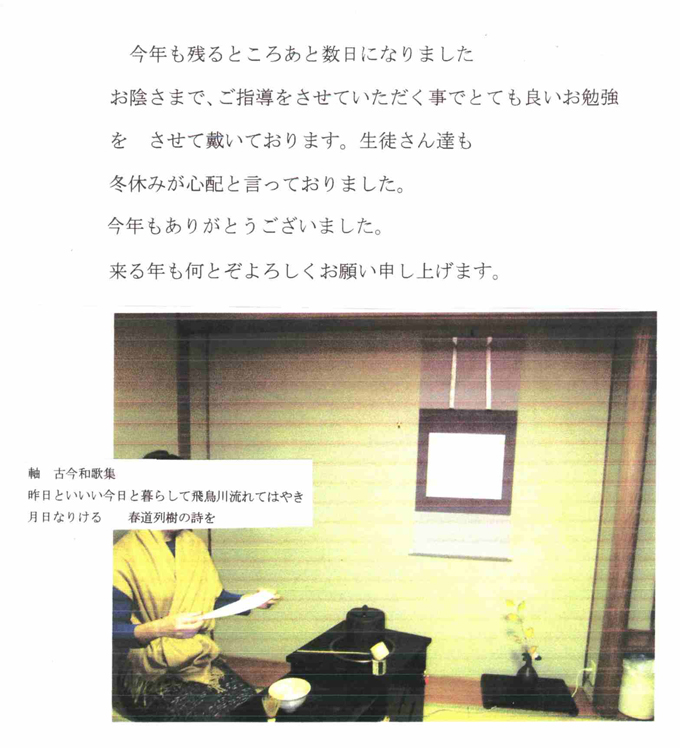 今年も残るところあと数日になりました
お陰さまで、ご指導をさせていただく事でとても良いお勉強
を　させて戴いております。生徒さん達も
冬休みが心配と言っておりました。
今年もありがとうございました。
来る年も何とぞよろしくお願い申し上げます。
軸　古今和歌集
昨日といいい今日と暮らして飛鳥川流れてはやき
月日なりける　　春道列樹の詩を